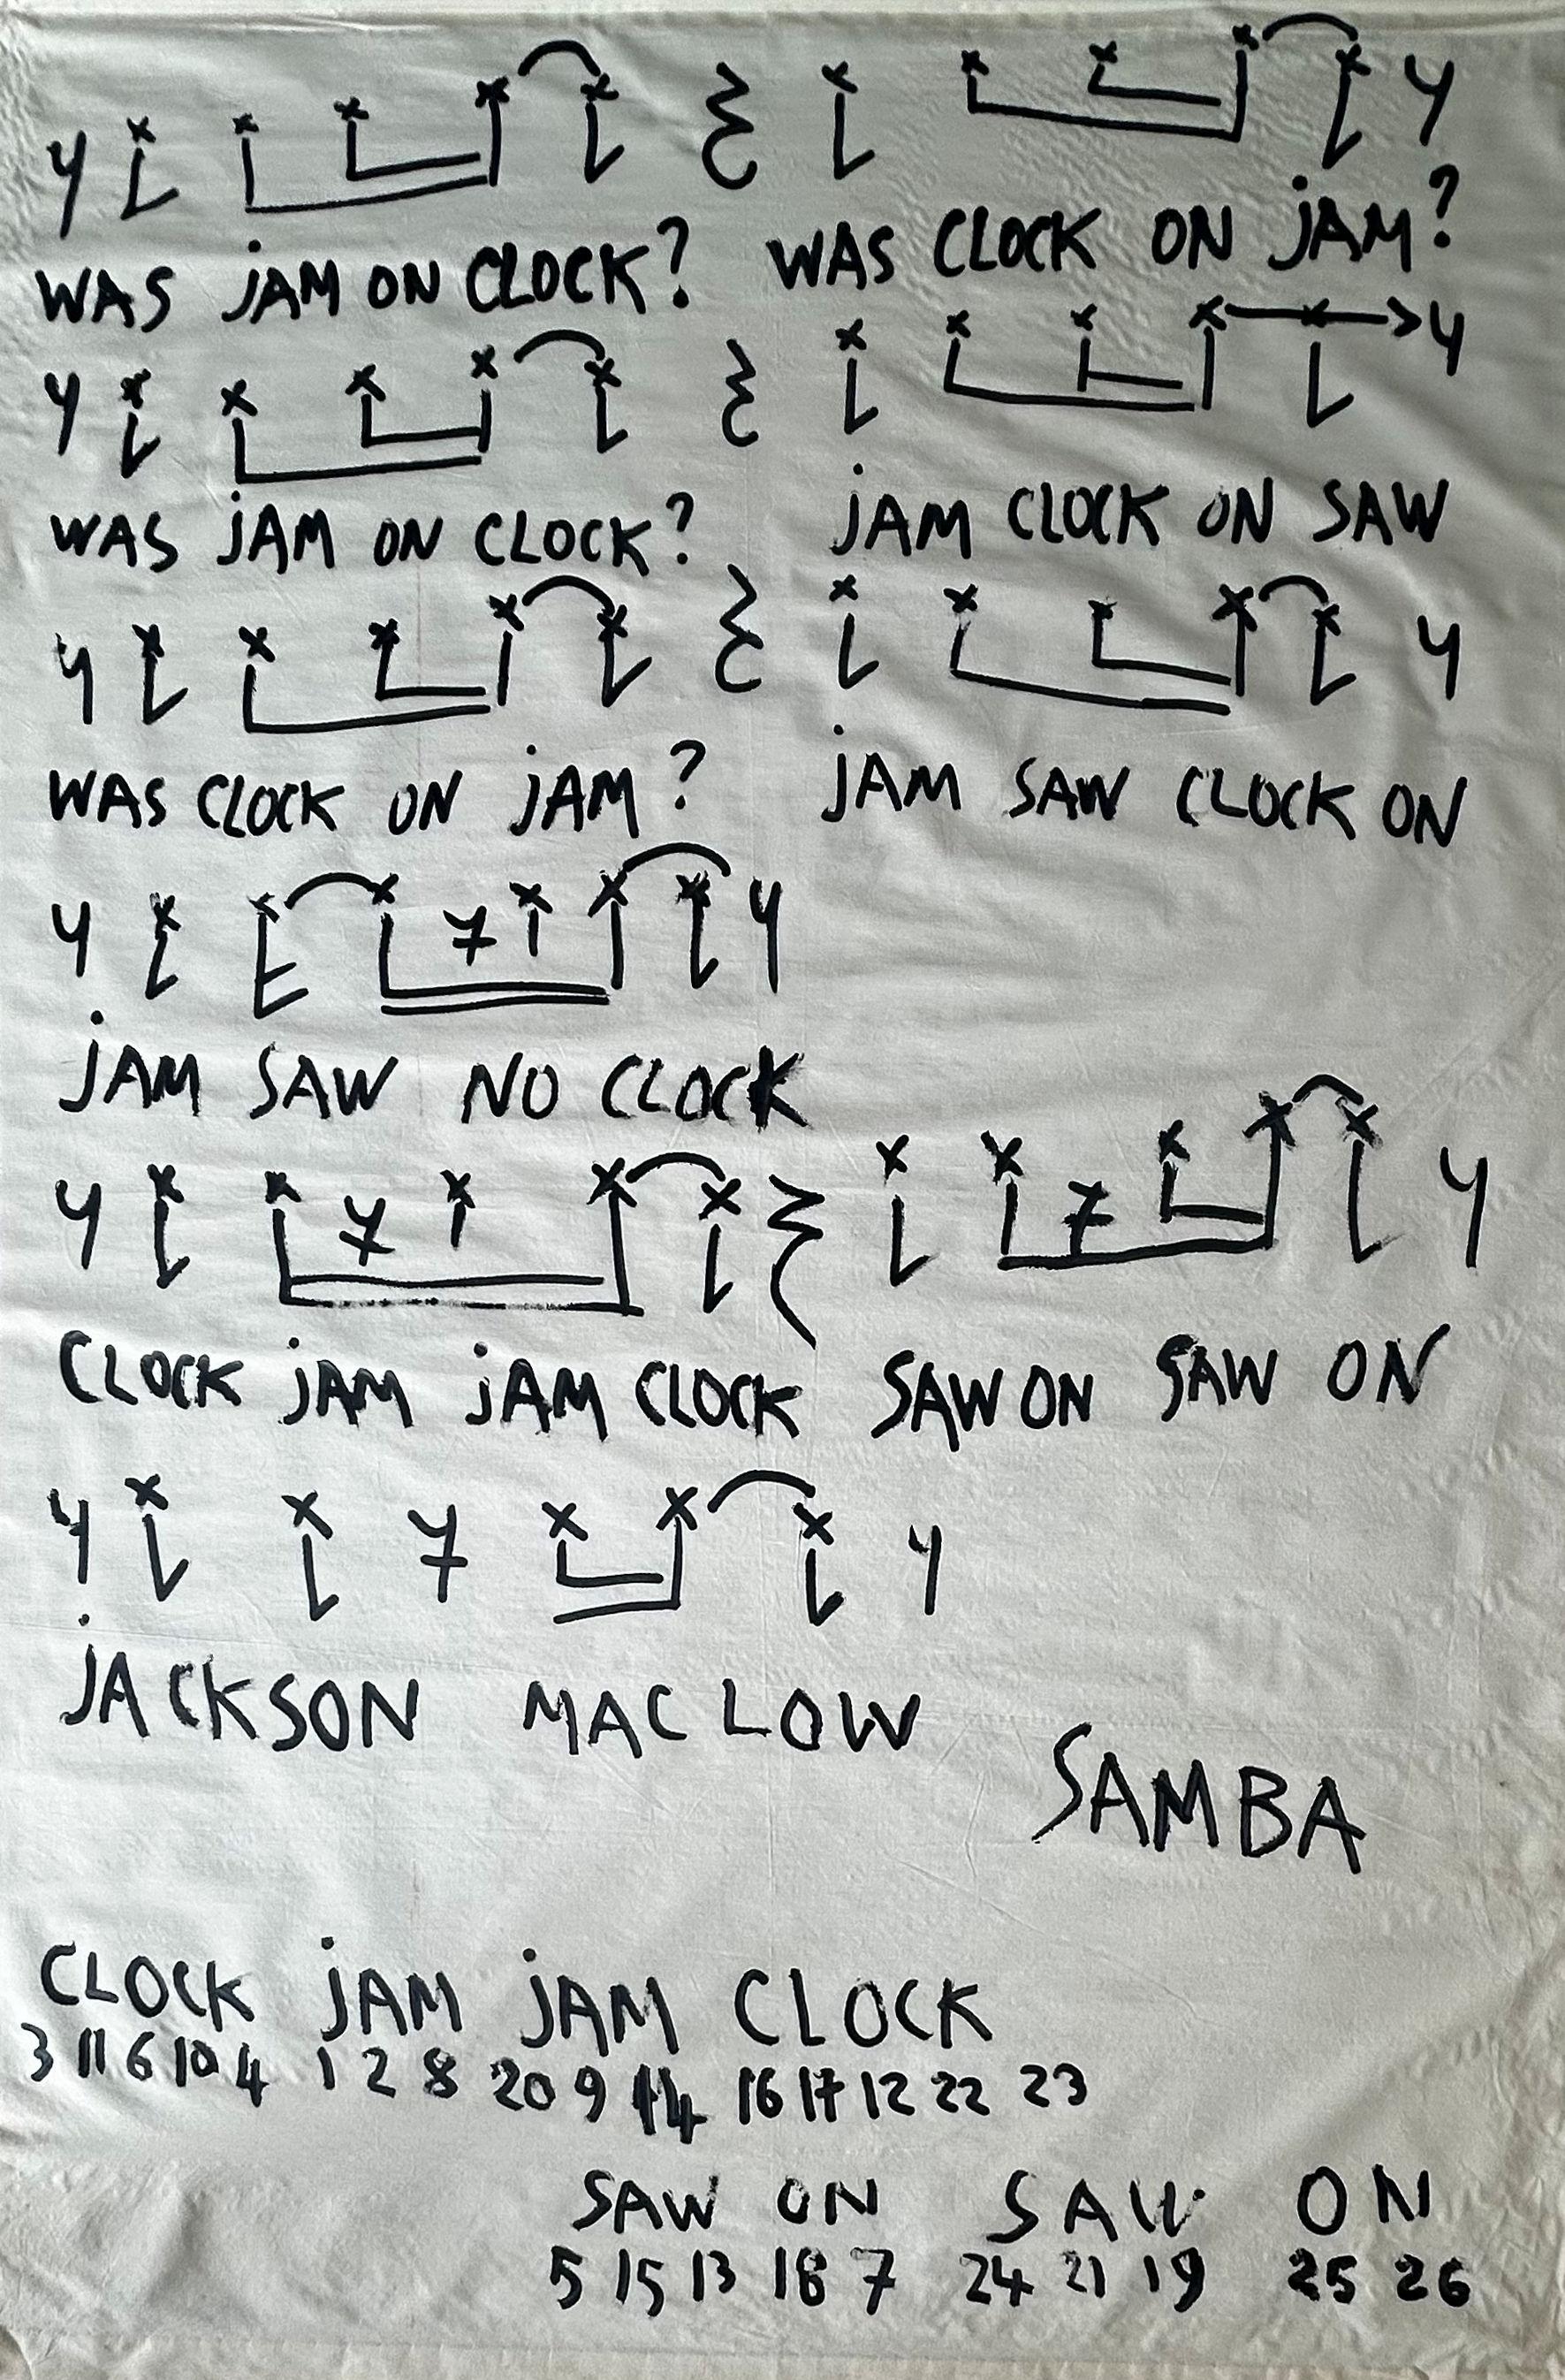 WAS jAM ON CLOCK? WAS CLOCK ON jAM?
WAS jAM ON CLOCK? jAM CLOCK ON SAW
WAS CLOCK ON jAM? jAM SAW CLOCK ON
jAM SAW NO CLOCK
CLOCK jAM jAM CLOCK SAW ON SAW ON
jACKSON MAC LOW
SAMBA
CLOCK jAM jAM CLOCK
3 11 6 10 4 1 2 8 20 9 14 16 17 12 22 23
SAW ON SAW ON
5 15 13 18 7 24 21 19 25 26